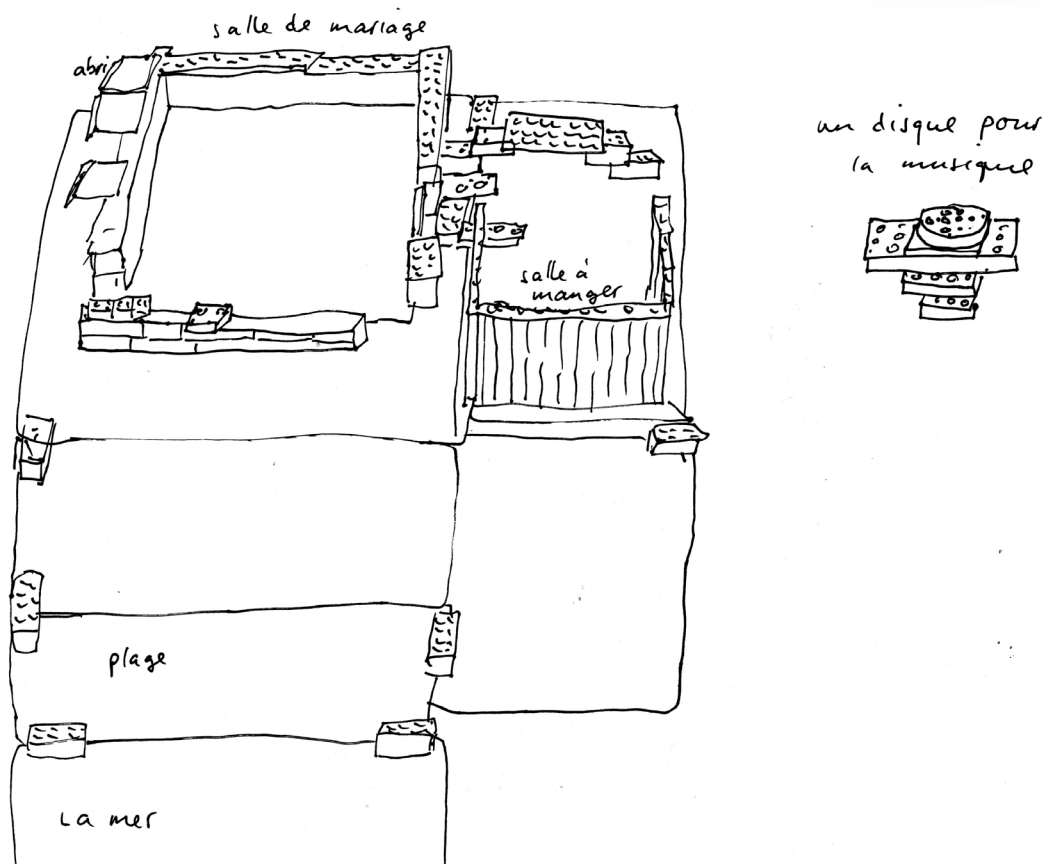 salle de mariage
abri
un disque pour
la musique
salle à
manger
plage
La mer